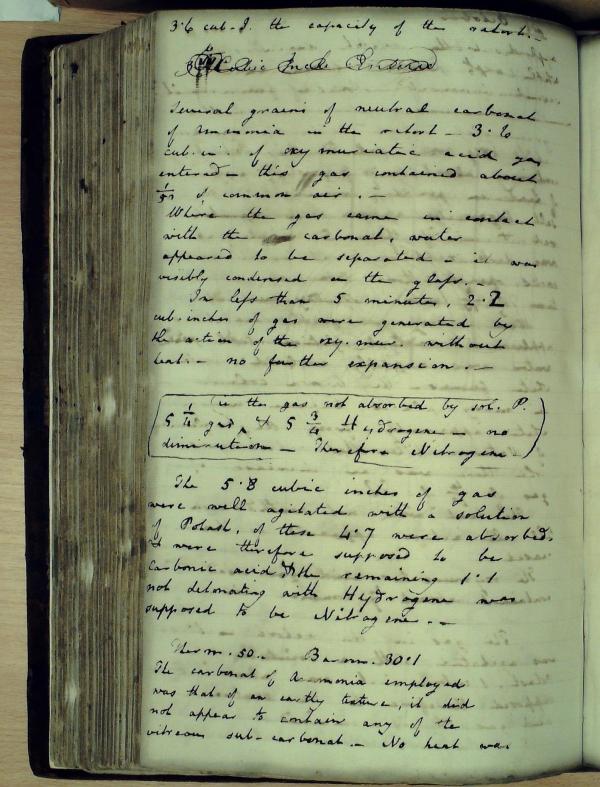 3·6 cub-I. the capacity of the retort.-
Cubic Inches Entered
Several grains of neutral carbonat
of ammonia in the retort - 3·6
cub. in. of oxymuriatic acid gas
entered - this gas contained about
of common air. -
Where the gas came in contact
with the carbonat, water
appeared to be separated - it was
visibly condensed on the glass. -
In less than 5 minutes, 2·2
cub. inches of gas were generated by
the action of the oxy. mur. without
heat. - no further expansion. -
the gas not absorbed by sol. P.
5 1/4 & 5 3/4 Hydrogene - no
diminution - Therefore Nitrogene -
The 5·8 cubic inches of gas
were well agitated with a solution
of Potash, of these 4·7 were absorbed.
& were therefore supposed to be
carbonic acid & the remaining 1·1
not detonating with Hydrogene was
supposed to be Nitrogene. -
Therm. 50.. Barom. 30·1
The carbonat of Ammonia employed
was that of an earthy texture, it did
not appear to contain any of the
vitreous sub-carbonat. - No heat was